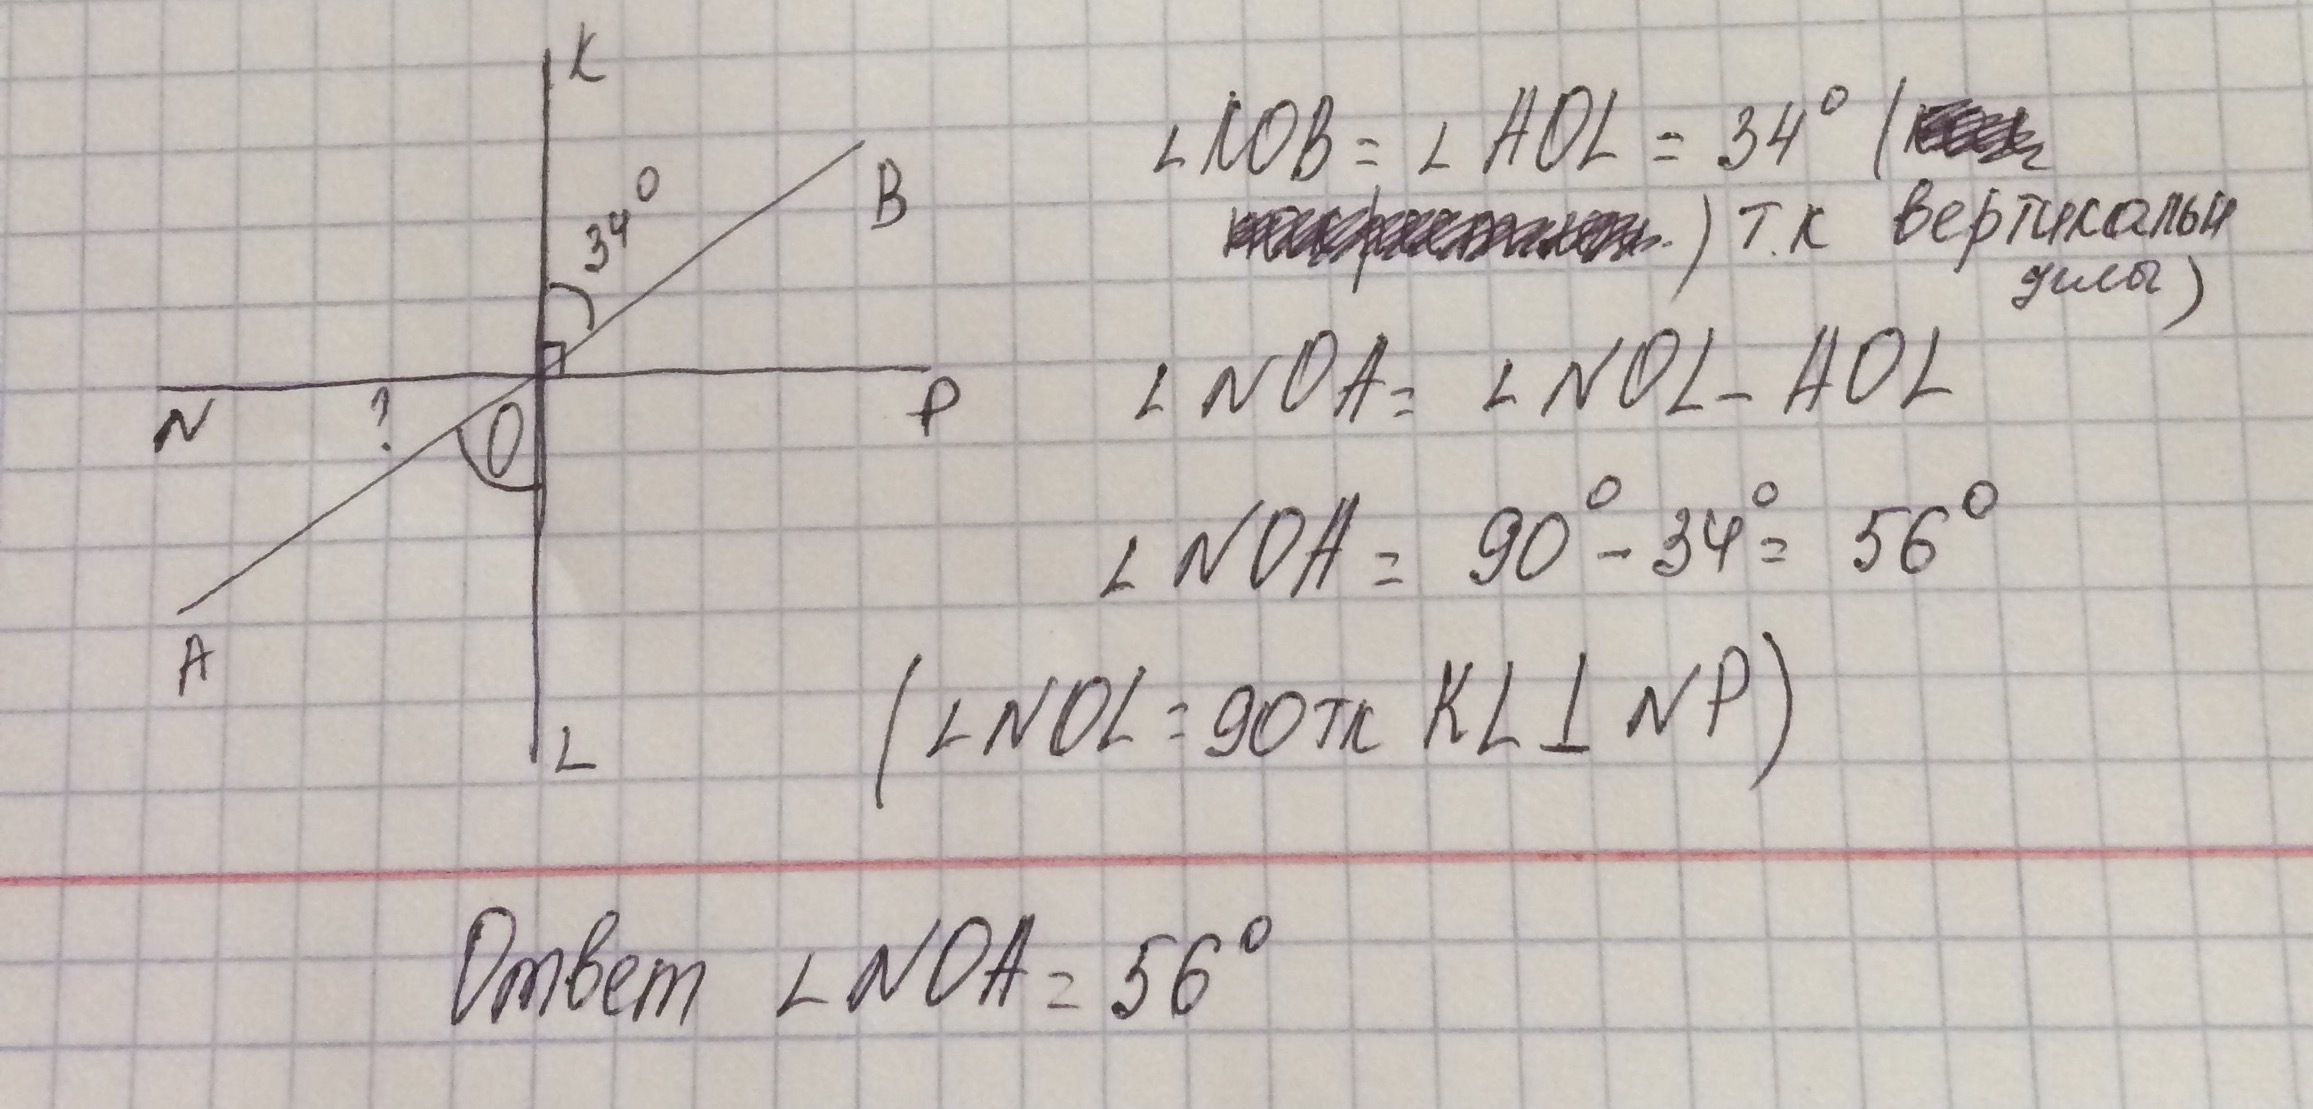 K
34°
B
N
?
O
P
A
L
∠KOB = ∠AOL = 34° (
) т.к вертикальн
углы)
∠NOA = ∠NOL - AOL
∠NOA = 90° - 34° = 56°
(∠NOL = 90 тк KL ⊥ NP)
Ответ ∠NOA = 56°